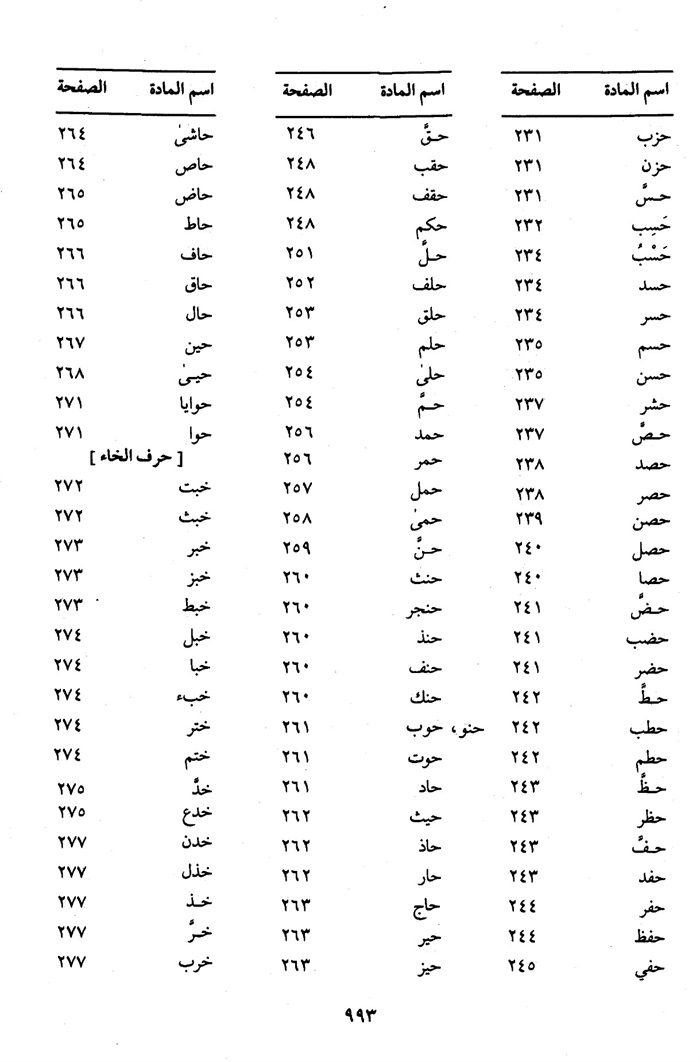 اسم المادة الصفحة
حزب ٢٣١
حزن ٢٣١
حسَّ ٢٣١
حَسِب ٢٣٢
حَسْبُ ٢٣٤
حسد ٢٣٤
حسر ٢٣٤
حسم ٢٣٥
حسن ٢٣٥
حشر ٢٣٧
حصَّ ٢٣٧
حصد ٢٣٨
حصر ٢٣٨
حصن ٢٣٩
حصل ٢٤٠
حصا ٢٤٠
حضَّ ٢٤١
حضب ٢٤١
حضر ٢٤١
حطَّ ٢٤٢
حطب ٢٤٢
حطم ٢٤٢
حظَّ ٢٤٣
حظر ٢٤٣
حفَّ ٢٤٣
حفد ٢٤٣
حفر ٢٤٤
حفظ ٢٤٤
حفي ٢٤٥
اسم المادة الصفحة
حقَّ ٢٤٦
حقب ٢٤٨
حقف ٢٤٨
حكم ٢٤٨
حلَّ ٢٥١
حلف ٢٥٢
حلق ٢٥٣
حلم ٢٥٣
حلىٰ ٢٥٤
حمَّ ٢٥٤
حمد ٢٥٦
حمر ٢٥٦
حمل ٢٥٧
حمىٰ ٢٥٨
حنَّ ٢٥٩
حنث ٢٦٠
حنجر ٢٦٠
حنذ ٢٦٠
حنف ٢٦٠
حنك ٢٦٠
حنو، حوب ٢٦١
حوت ٢٦١
حاد ٢٦١
حيث ٢٦٢
حاذ ٢٦٢
حار ٢٦٢
حاج ٢٦٣
حير ٢٦٣
حيز ٢٦٣
اسم المادة الصفحة
حاشىٰ ٢٦٤
حاص ٢٦٤
حاض ٢٦٥
حاط ٢٦٥
حاف ٢٦٦
حاق ٢٦٦
حال ٢٦٦
حين ٢٦٧
حيىٰ ٢٦٨
حوايا ٢٧١
حوا ٢٧١
[ حرف الخاء ]
خبت ٢٧٢
خبث ٢٧٢
خبر ٢٧٣
خبز ٢٧٣
خبط ٢٧٣
خبل ٢٧٤
خبا ٢٧٤
خبء ٢٧٤
ختر ٢٧٤
ختم ٢٧٤
خدَّ ٢٧٥
خدع ٢٧٥
خدن ٢٧٧
خذل ٢٧٧
خذ ٢٧٧
خرَّ ٢٧٧
خرب ٢٧٧
٩٩٣